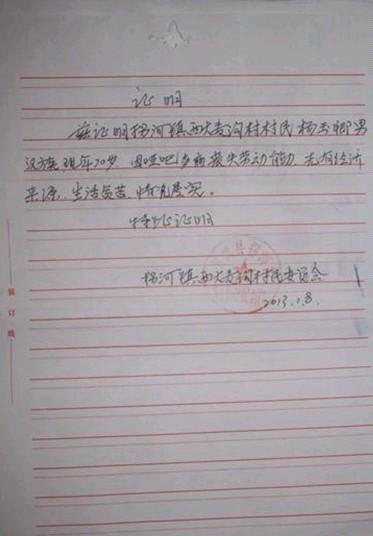 证明
兹证明杨河镇西大麦沟村村民杨玉卿男
汉族现年70岁,因哑吧多病丧失劳动能力,无有经济
来源、生活贫苦、情况属实。
特此证明
杨河镇西大麦沟村村民委员会
2013.1.8.
装订线